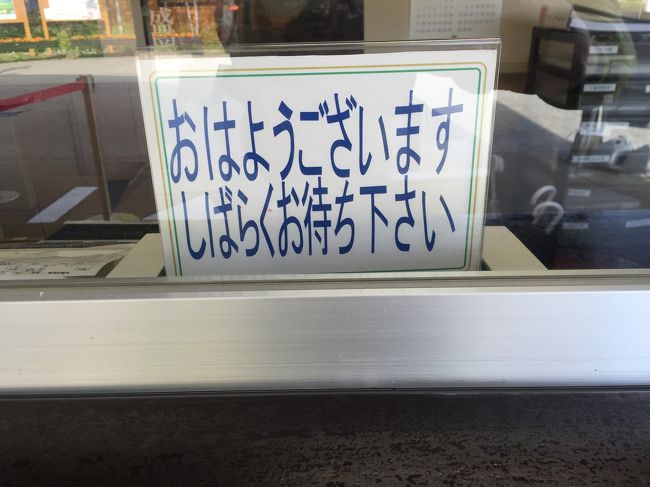 おはようございます
しばらくお待ち下さい